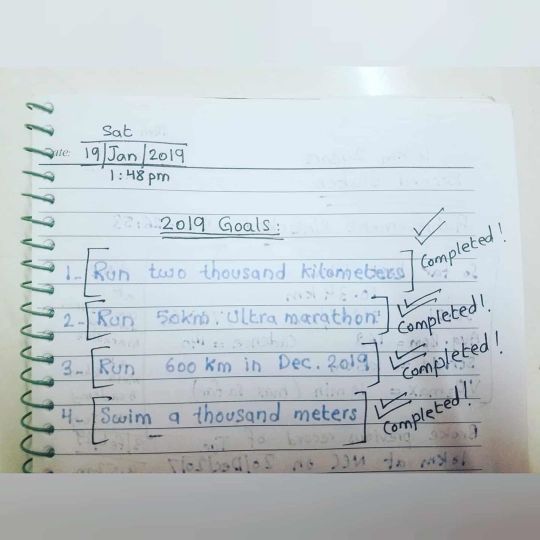 Sat
Date: 19/Jan/2019
1:48pm
2019 Goals:
1- [Run two thousand kilometers] Completed!
2- [Run 50km. Ultra marathon] Completed!
3- [Run 600 km in Dec. 2019] Completed!
4- [Swim a thousand meters] Completed!